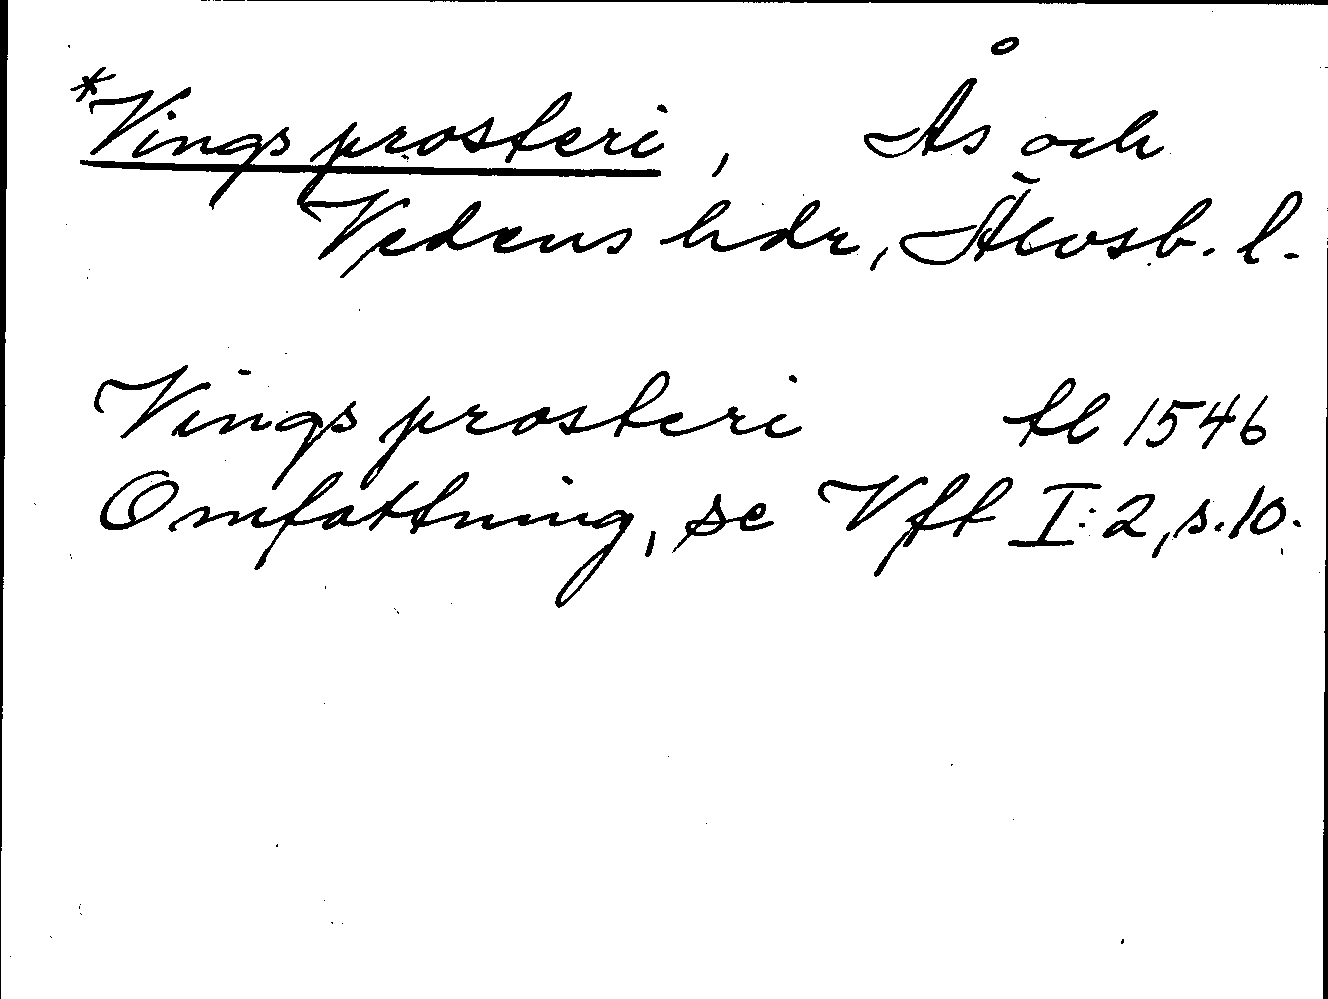 *Vings prosteri, Ås och
Vedens hdr, Älvsb. l.
Vings prosteri tl 1546
Omfattning, se Vft I:2, s. 10.